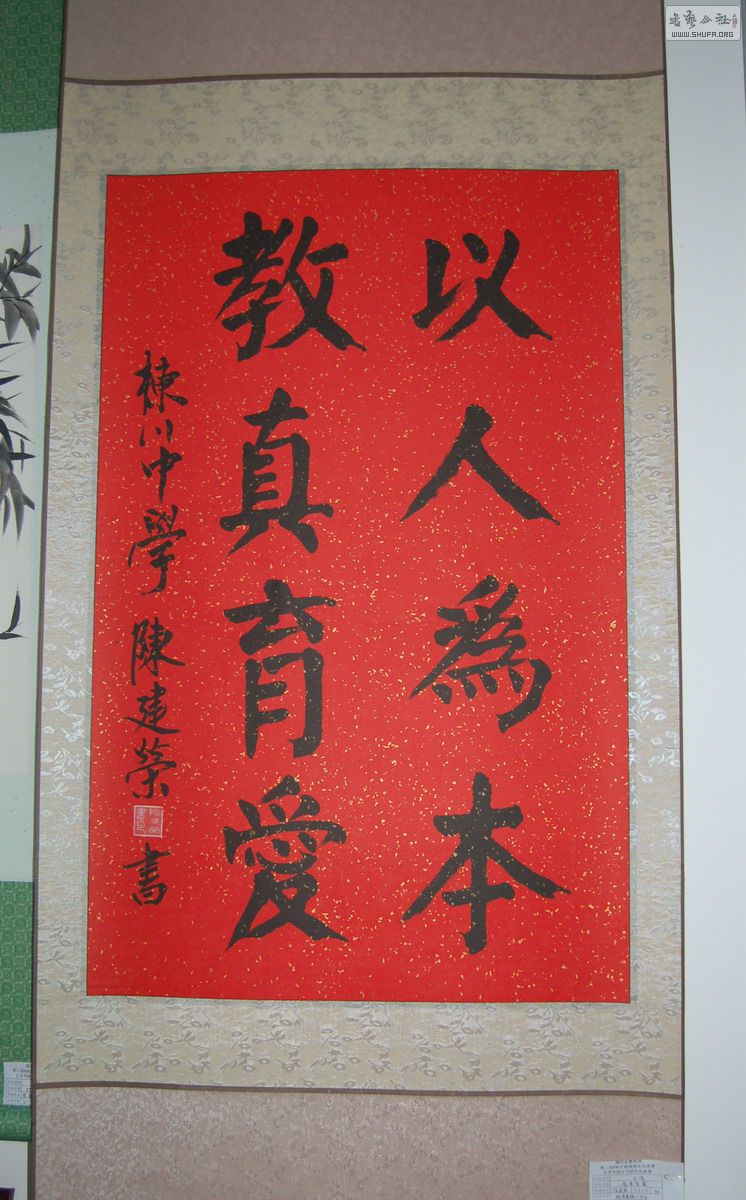 以人爲本
教真育愛
棟川中學 陳建榮 書
書藝公社
WWW.SHUFA.ORG